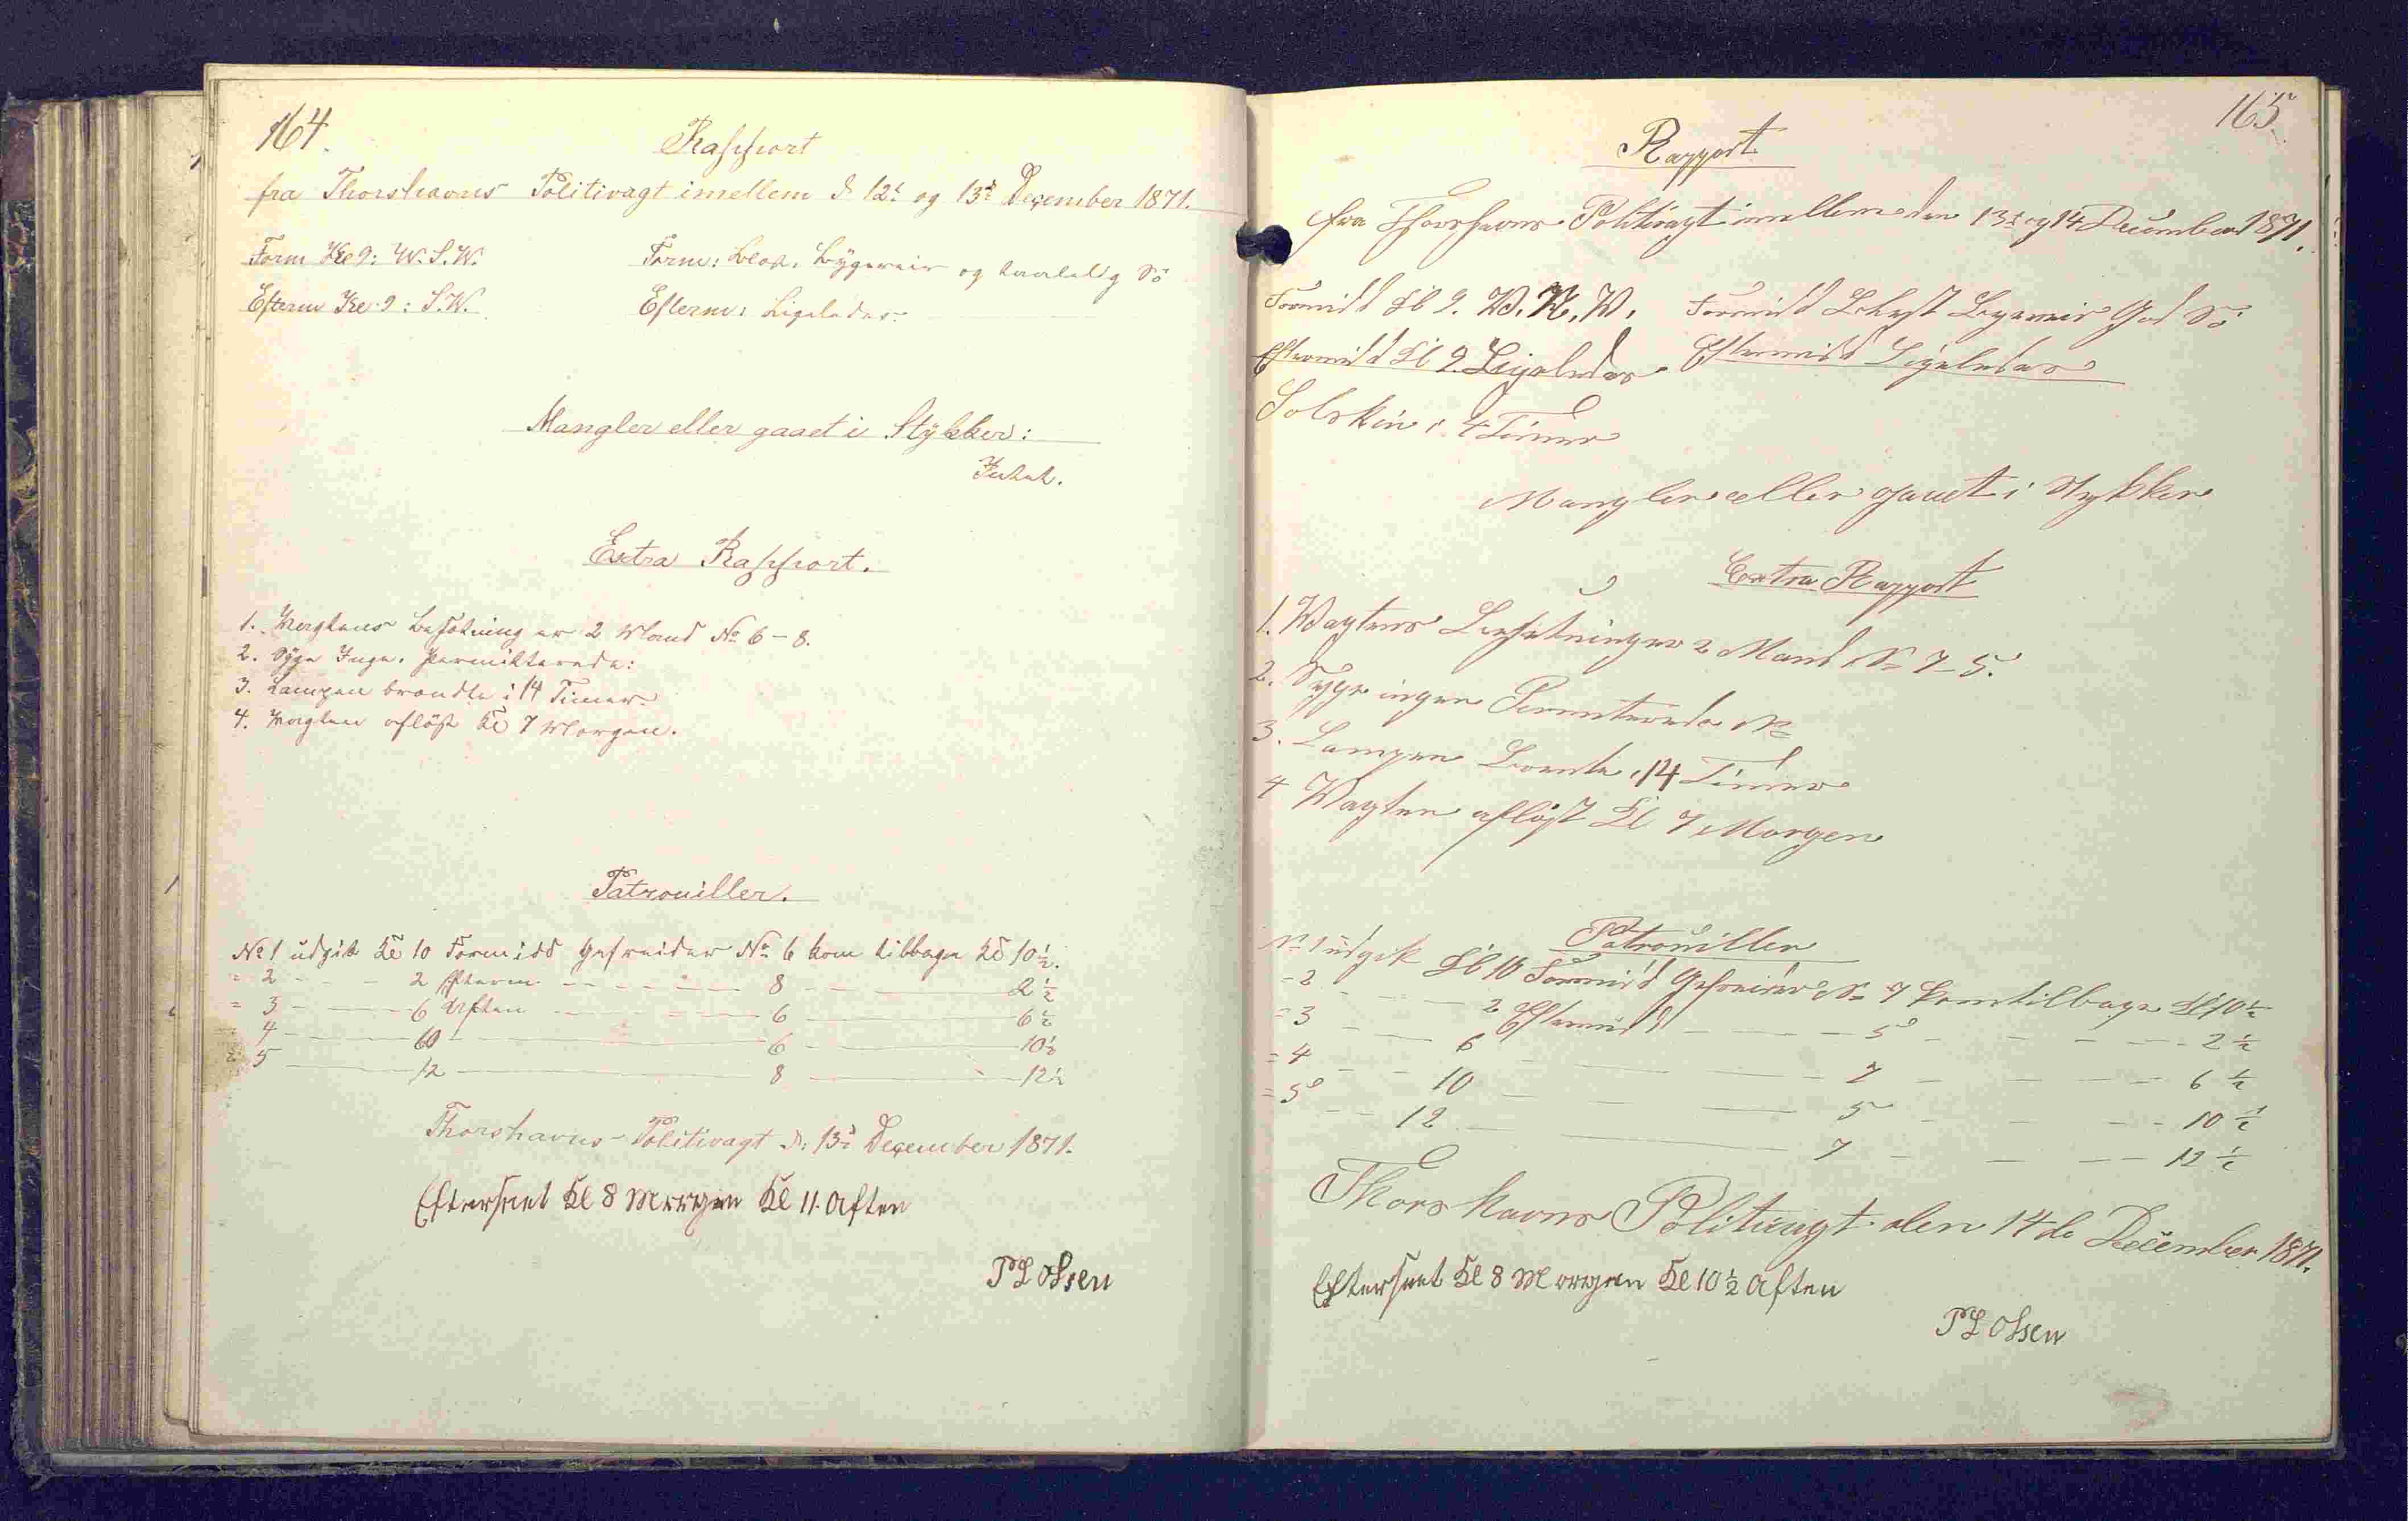 164.
Rapport
fra Thorshavns Politivagt imellem d 12t og 13d December 1871.
Form Kl 9: W.S.W. Form: Bygeveir og taalelig Sö
Efterm Kl 9: S.W. Efterm: Ligeledes
Mangler eller gaaet i Stykker:
Intet.
Extra Rapport.
1. Vagtens Besætning er 2 Mand No 6 – 8.
2. Syge Inge. permitterede:
3. Lampen brændte i 14 Timer
4. Vagten aflöst Kl 7 Morgen.
Patrouiller.
No 1 udgik Kl 10 Formidd Gefreider No 6 kom tilbage Kl 10½.
= 2 - - - 2 Efterm - - - - 8 - - 2½
= 3 - - 6 Aften - - - - 6 - 6½
4 - 10 - 6 - 10½
= 5 - 12 - 8 - 12½
Thorshavns Politivagt d. 13d December 1871.
Efterseet Kl 8 Morgen Kl 11 Aften
P L Olsen
165.
Rapport
fra Thorshavns Politivagt imellem den 13d og 14 December 1871.
Formidd Kl 9. W.N.W. Formidd Bygeveir God Sö
Eftermidd Kl 9 Ligeledes Eftermidd Ligeledes
Solskin i 4 Timer
Mangler eller gaaet i Stykker
Extra Rapport
1. Wagtens Besætning er 2 Mand No 7 - 5.
2. Syge ingen Permiterede No
3. Lampen Brendte i 14 Timer
4 Wagten aflöst Kl 7 Morgen
Patrouiller
No 1 udgik Kl 10 Formidd Gefreider No 7 kom tilbage Kl 10½
- 2 - - - 2 Eftermidd - - - 5 - - - - 2½
= 3 - - 6 - - - 7 - - - 6½
= 4 - - 10 - - - 5 - - - 10½
= 5 - - 12 - - 7 - - - 12½
Thorshavns Politivagt den 14de December 1871.
Efterseet Kl 8 Morgen Kl 10½ Aften
P L Olsen